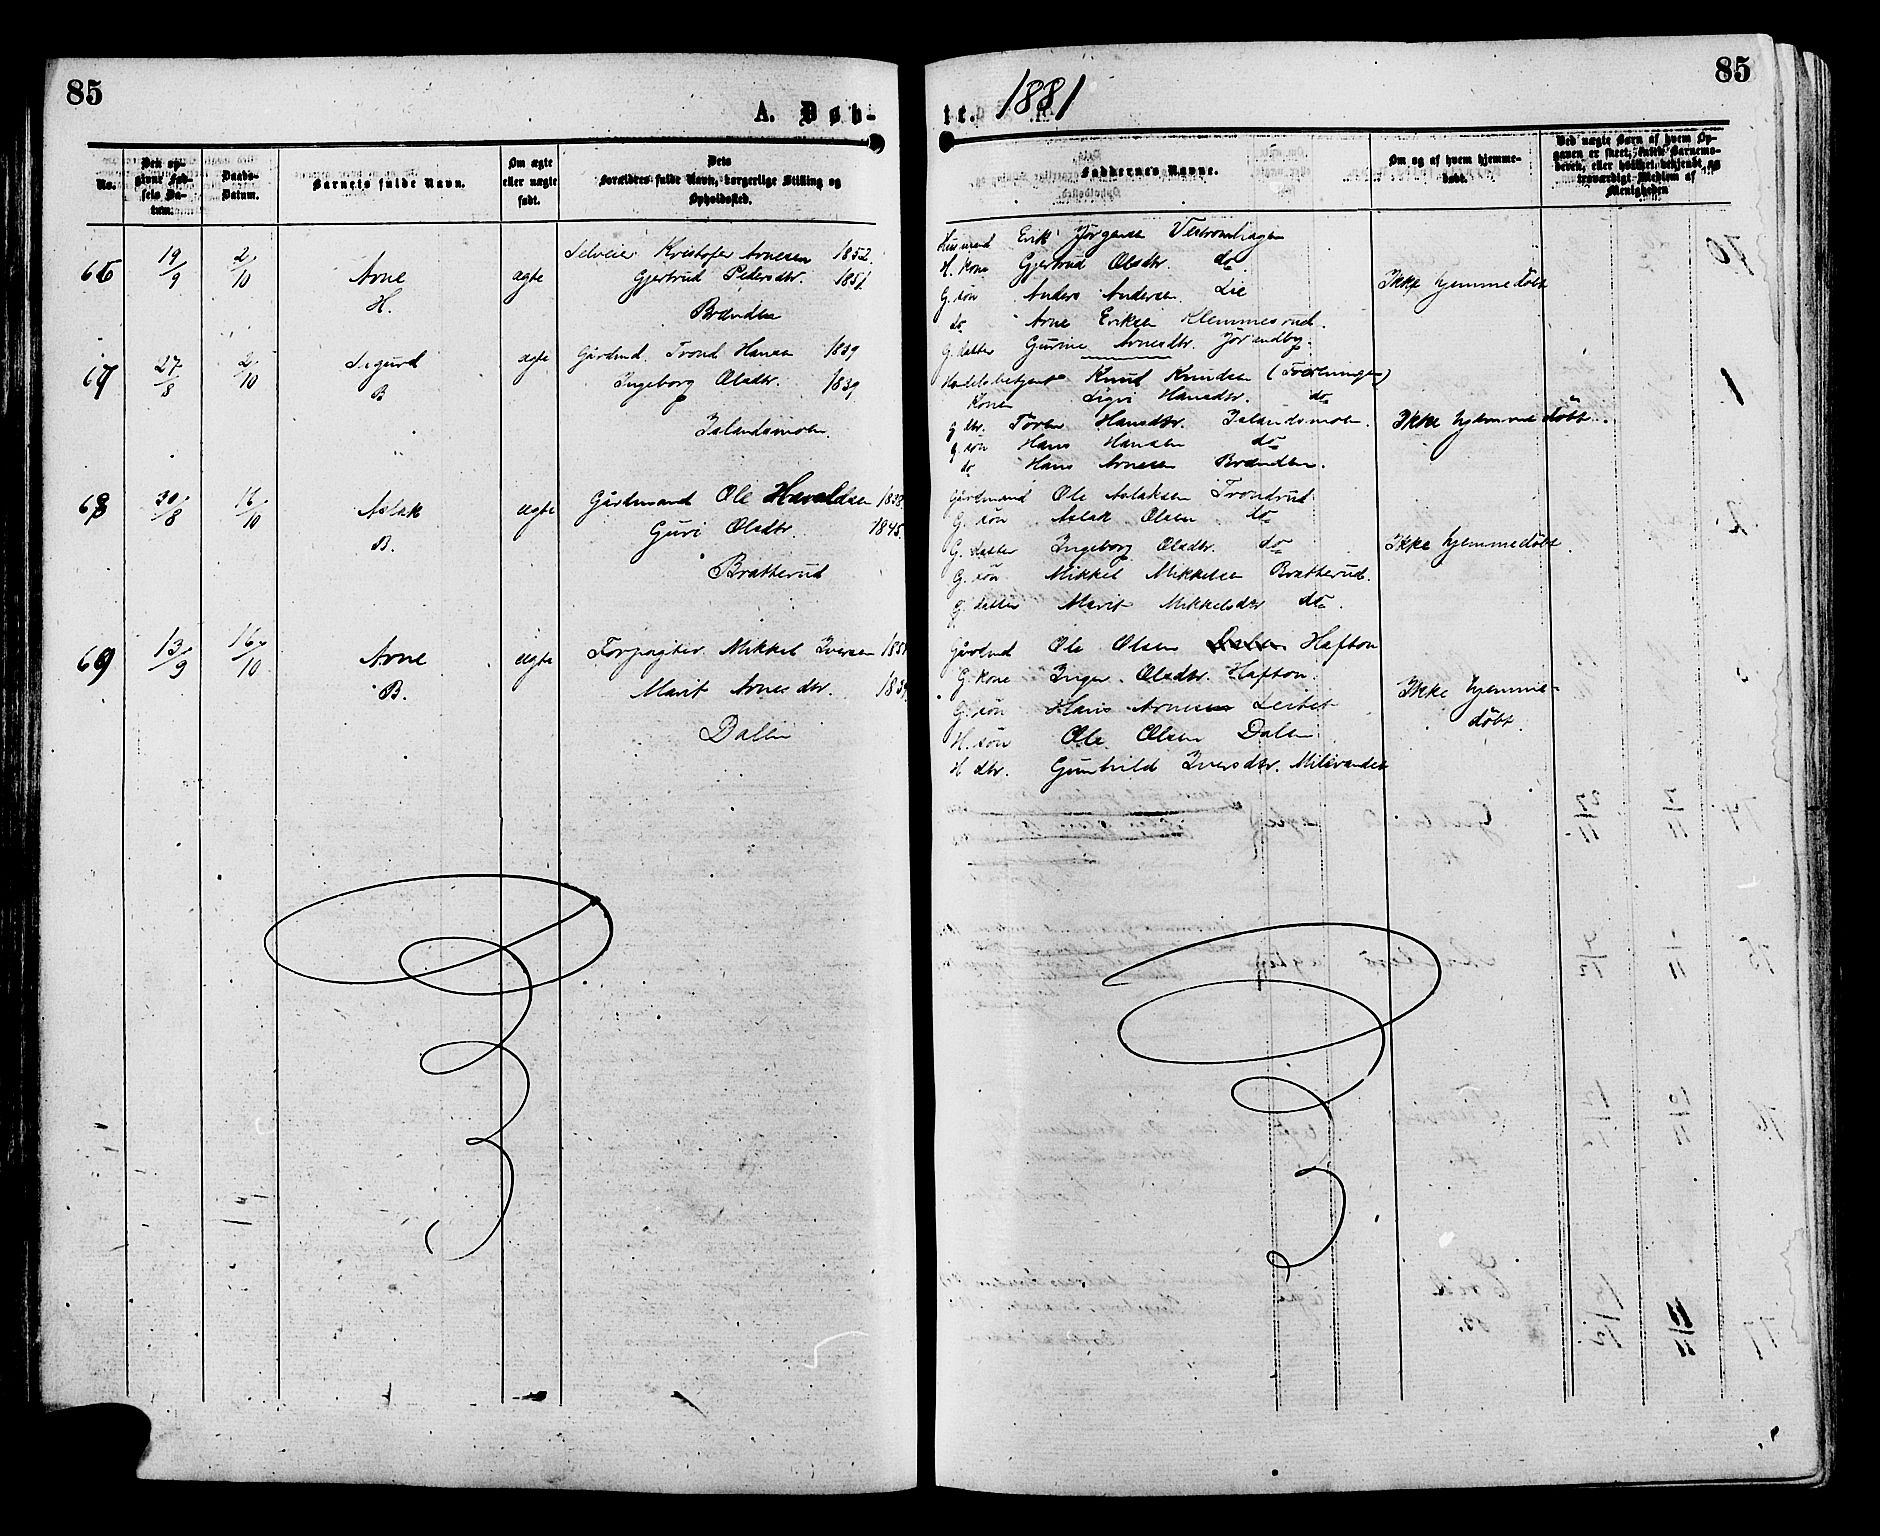 85
85
A. Døb-
te. 1881
No.
Den op-
givne Fød-
sels Da-
tum.
Daabs-
Datum.
Barnets fulde Navn.
Om ægte
eller uægte
født.
Dets
Forældres fulde Navn, borgerlige Stilling og
Opholdssted.
Faddernes Navne.
Om og af hvem hjemme-
døbt.
Ved uægte Børn af hvem Op-
gaven er skeet, enten Barnemo-
deren, eller hvilket bekjendt og
troværdigt Medlem af
Menigheden
66 19/9 2/10 Arne
H.
ægte
Selveier Kristofer Arnesen 1852.
Gjertrud Pedersdtr. 1851.
Brænden
Husmand Erik Jørgensen Vestromhagen
H. kone Gjertrud Olsdtr. do
G. søn Anders Andersen Lie
do Arne Eriksen Klemmesrud.
G. datter Gurine Arnesdtr. Jørandby.
Ikke hjemmedøbt
67 27/8 2/10 Sigurd
B
ægte
Gårdmd. Trond Hansen 1839
Ingeborg Olsdtr. 1839
Islandsmoen.
Handelsbetjent Knud Knudsen (Foreningen)
Kone Sigri Hansdtr. do
g. dtr. Toren Hansdtr. Islandsmoen.
g. søn Hans Hansen do
do Hans Arnesen Brænden.
Ikke hjemmedøbt.
68 30/8 16/10 Aslak
B.
ægte
Gårdmand Ole Havaldsen 1838
Guri Olsdtr. 1845.
Bratterud
Gårdmand Ole Aslaksen Trondrud
G. søn Aslak Olsen do
G. datter Ingeborg Olsdtr. do
G. søn Mikkel Mikkelsen Bratterud.
G. datter Marit Mikkelsdtr do.
Ikke hjemmedøbt.
69 13/9 16/10 Arne
B.
ægte
Forpagter Mikkel Iversen 1851
Marit Arnesdtr. 1839
Dalen
Gårdmd Ole Olsen Hafton
G. kone Inger Olsdtr. Hafton.
G. søn Hans Arnesen
H. søn Ole Olsen Dalen
H dtr. Gunhild Iversdtr.
Ikke hjemme-
døbt.